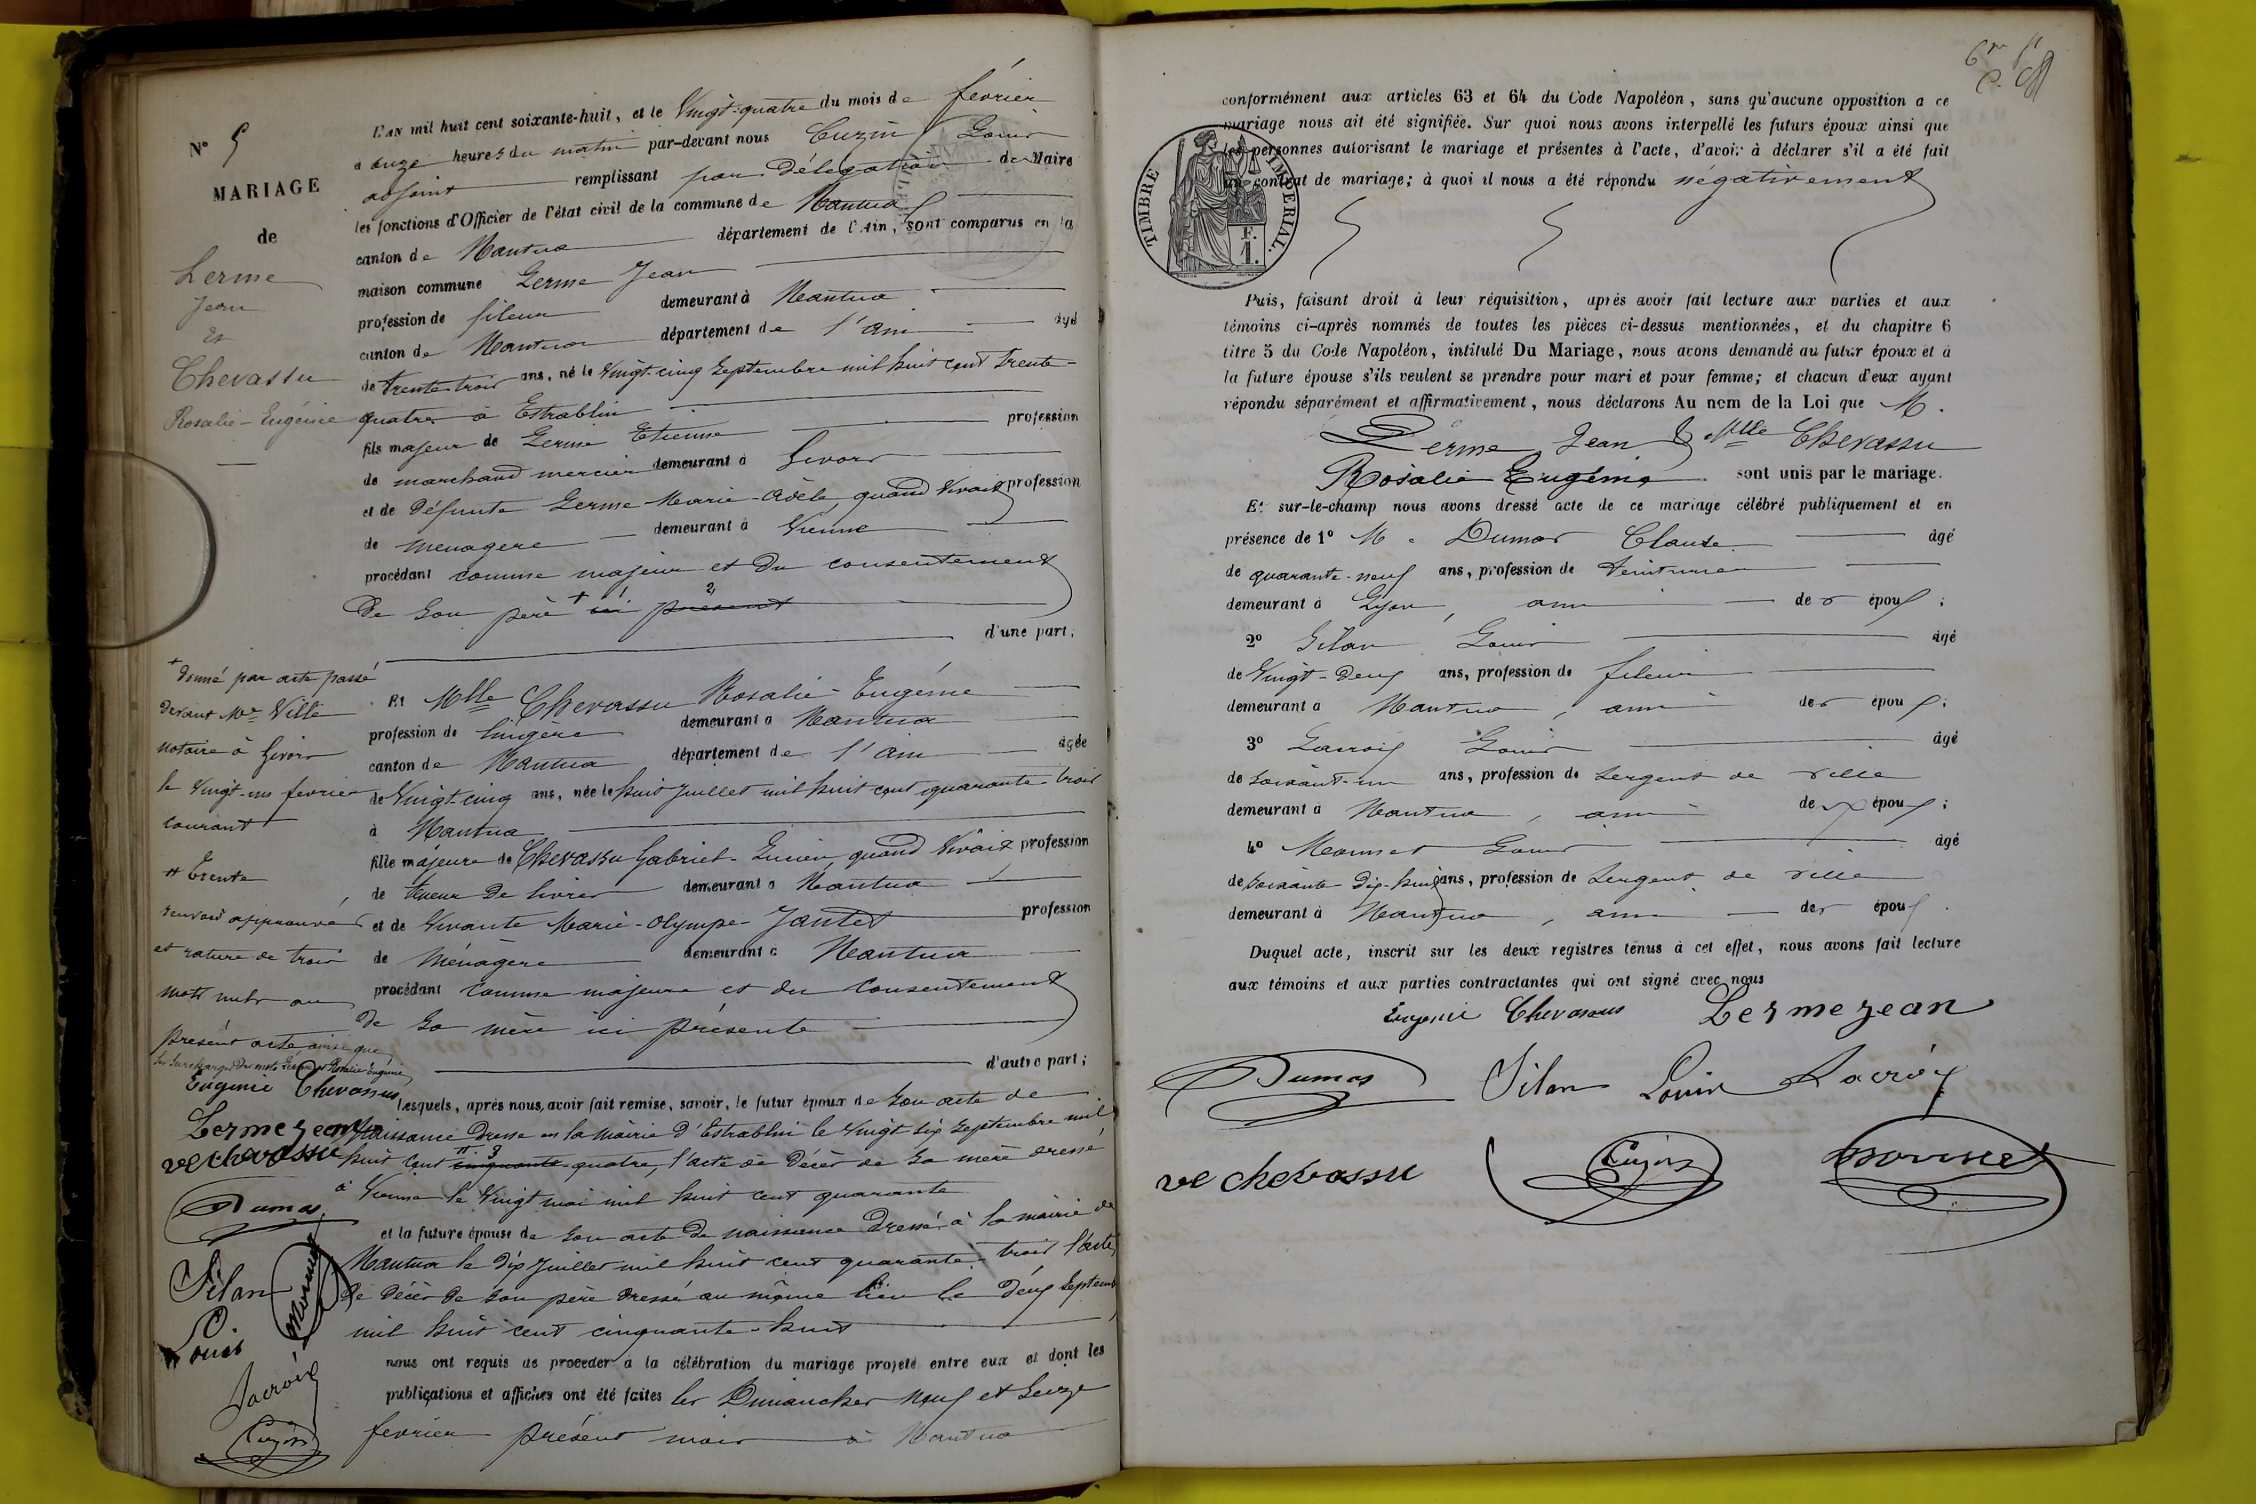 N° 5
MARIAGE
de
Lerme
Jean
et
Chevassu
Rosalie-Eugénie
L'AN mil huit cent soixante-huit, et le Vingt-quatre du mois de février
à onze heures du matin par-devant nous Cuzin Louis
adjoint remplissant par délégation de Maire
les fonctions d'Officier de l'état civil de la commune de Nantua
canton de Nantua département de l'Ain, sont comparus en la
maison commune Lerme Jean
profession de fileur demeurant à Nantua
canton de Nantua département de l'ain âgé
de trente-trois ans, né le Vingt-cinq Septembre mil huit cent trente-
quatre à Estrablin
fils majeur de Lerme Etienne profession
de marchand mercier demeurant à Givors
et de défunte Lerme Marie-Adèle quand Vivait profession
de menagere demeurant à Vienne
procédant comme majeur et du consentement
de son père + ici présent
d'une part;
+ donné par acte passé
devant Me Ville
notaire à Givors
le Vingt-un fevrier
courant
++ Trente
renvois approuvés
et rature de trois
mots nuls au
présent acte ainsi que
les surcharges des mots Lerme et Rosalie Eugénie
Eugenie Chevassus
Lerme Jean
ve chevassu
Dumas
Silan
Louis
Monnet
Lacroix
Cuzin
Et Mlle Chevassu Rosalie-Eugénie
profession de lingère demeurant à Nantua
canton de Nantua département de l'ain âgée
de Vingt-cinq ans, née le huit Juillet mil huit cent quarante-trois
à Nantua
fille majeure de Chevassu Gabriel-Lucien, quand Vivait profession
de teneur de livres demeurant à Nantua
et de Vivante Marie-Olympe Jantet profession
de Ménagère demeurant à Nantua
procédant comme majeure et du Consentement
de Sa mère ici présente
d'autre part;
Lesquels, après nous avoir fait remise, savoir, le futur époux de son acte de
Naissance Dressé en la mairie d'Estrablin le Vingt six Septembre mil
huit cent cinquante-quatre, l'acte de Décès de Sa mère dressé
à Vienne le Vingt mai mil huit cent quarante
et la future épouse de son acte de naissance Dressé à la mairie de
Nantua le dix Juillet mil huit cent quarante-trois l'acte
de Décès de son père dressé au même lieu le deux Septembre
mil huit cent cinquante-huit
nous ont requis de procéder à la célébration du mariage projeté entre eux et dont les
publications et affiches ont été faites les Dimanches neuf et Seize
fevrier présent mois à Nantua
conformément aux articles 63 et 64 du Code Napoléon, sans qu'aucune opposition a ce
mariage nous ait été signifiée. Sur quoi nous avons interpellé les futurs époux ainsi que
les personnes autorisant le mariage et présentes à l'acte, d'avoir à déclarer s'il a été fait
un contrat de mariage; à quoi il nous a été répondu négativement
TIMBRE IMPERIAL.
F.
1.
Puis, faisant droit à leur réquisition, après avoir fait lecture aux parties et aux
témoins ci-après nommés de toutes les pièces ci-dessus mentionnées, et du chapitre 6
titre 5 du Code Napoléon, intitulé Du Mariage, nous avons demandé au futur époux et à
la future épouse s'ils veulent se prendre pour mari et pour femme; et chacun d'eux ayant
répondu séparément et affirmativement, nous déclarons Au nom de la Loi que M.
Lerme Jean & Mlle Chevassu
Rosalie Eugénie sont unis par le mariage.
Et sur-le-champ nous avons dressé acte de ce mariage célébré publiquement et en
présence de 1° M. Dumas Claude âgé
de quarante-neuf ans, profession de teinturier
demeurant à Lyon, ami des époux;
2° Silan Louis âgé
de Vingt-deux ans, profession de fileur
demeurant à Nantua, ami des époux;
3° Lacroix Louis âgé
de Soixante-un ans, profession de Sergent de ville
demeurant à Nantua, ami des époux;
4° Monnet Louis âgé
de Soixante Dix-huit ans, profession de Sergent de ville
demeurant à Nantua, ami des époux.
Duquel acte, inscrit sur les deux registres tenus à cet effet, nous avons fait lecture
aux témoins et aux parties contractantes qui ont signé avec nous
Eugenie Chevassus Lerme Jean
Dumas Silan Louis Lacroix
ve chevassu Cuzin monnet